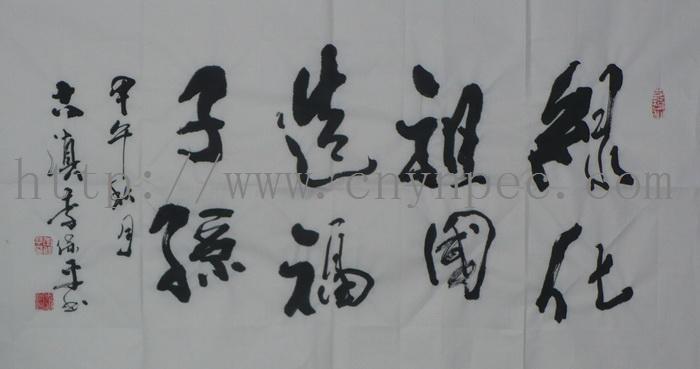 綠化
祖國
造福
子孫
甲午秋月
古滇李保平書
http://www.cnynpec.com